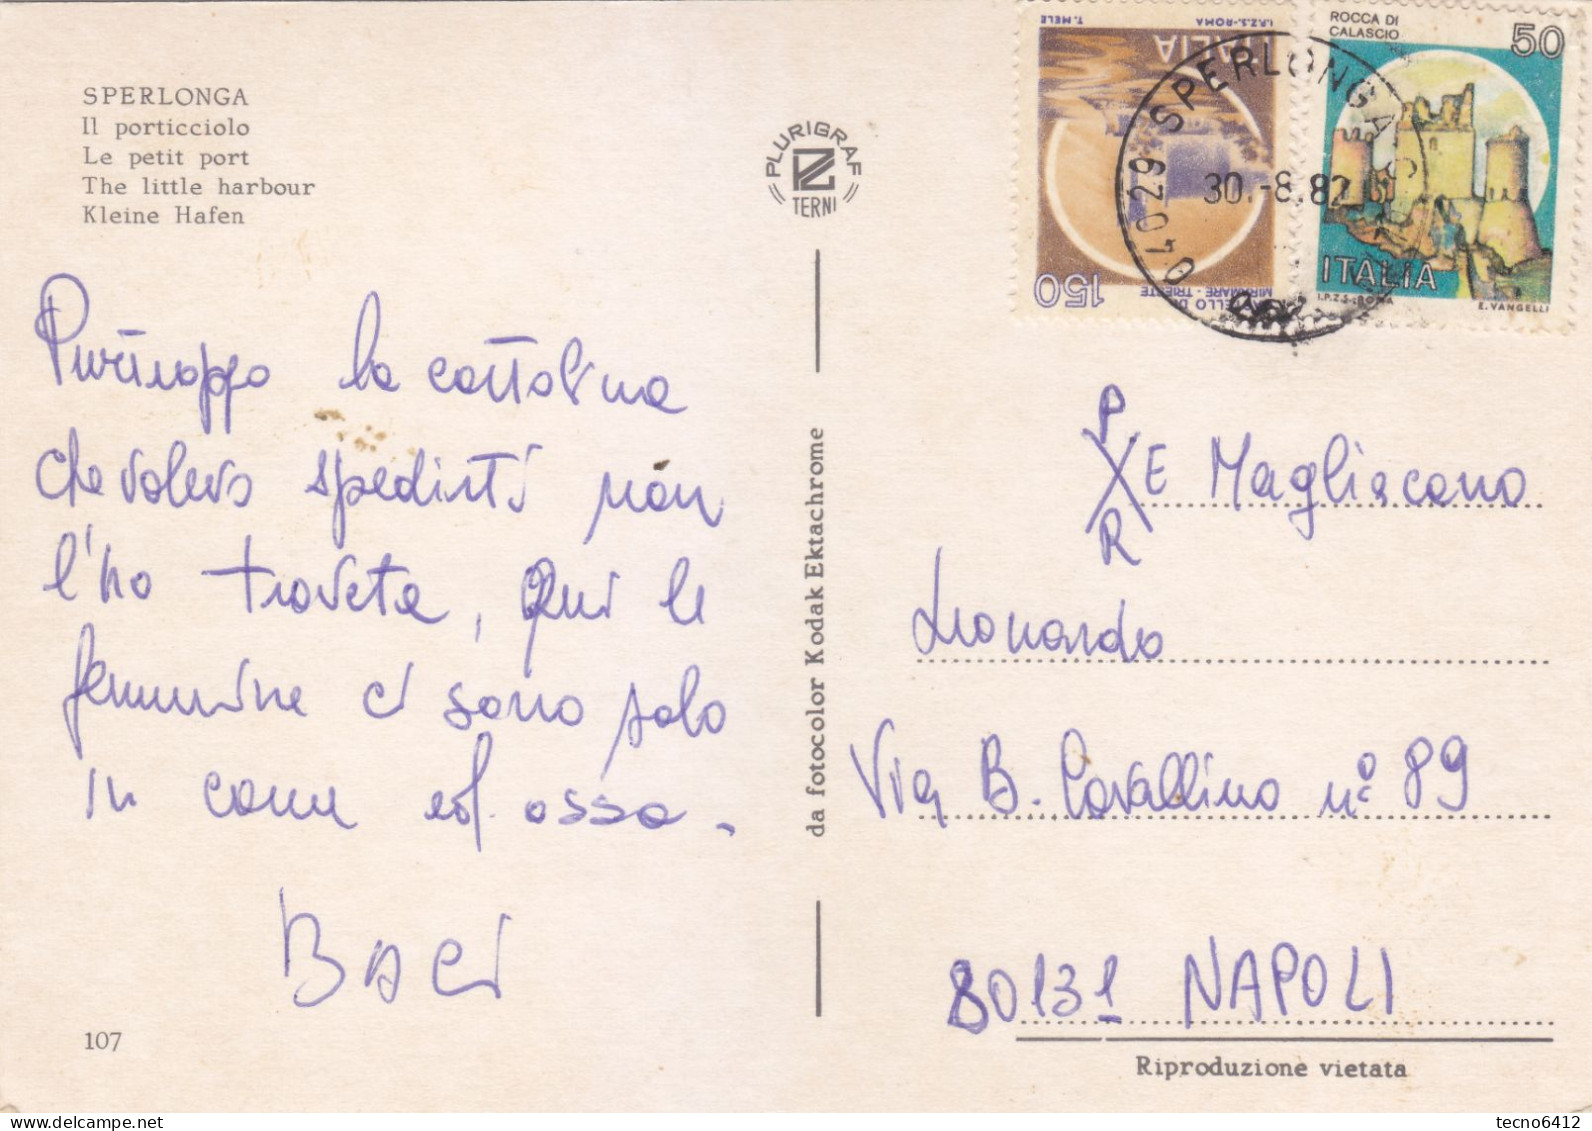 SPERLONGA
Il porticciolo
Le petit port
The little harbour
Kleine Hafen
PLURIGRAF
TERNI
T. MELE
I.P.Z.S.-ROMA
ITALIA
150
MIRAMARE - TRIESTE
ROCCA DI
CALASCIO
50
ITALIA
I.P.Z.S.-ROMA
E. VANGELLI
04029 SPERLONGA
30.-8.82
Purtroppo la cartolina
che volevo spedirti non
l'ho trovata, qui le
femmine ci sono solo
in carne ed ossa.
BACI
107
da fotocolor Kodak Ektachrome
P
R
E Magliacano
Leonardo
Via B. Cavallino n° 89
80131 NAPOLI
Riproduzione vietata
tecno6412